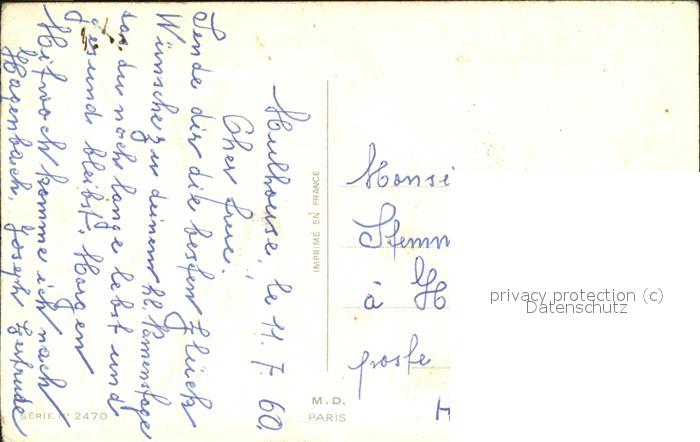 Mulhouse, le 11. 7. 60
Cher frère.
Sende dir die besten Glück
Wünsche zu deinem hl. Namenstage
das du noch lange lebst und
gesund bleibst. Morgen
Mitwoch komme ich nach
Hagenbach. Joseph Gertrude
IMPRIMÉ EN FRANCE
M. D.
PARIS
SÉRIE N° 2470
Monsi
Stemm
à H
poste
H
privacy protection (c)
Datenschutz